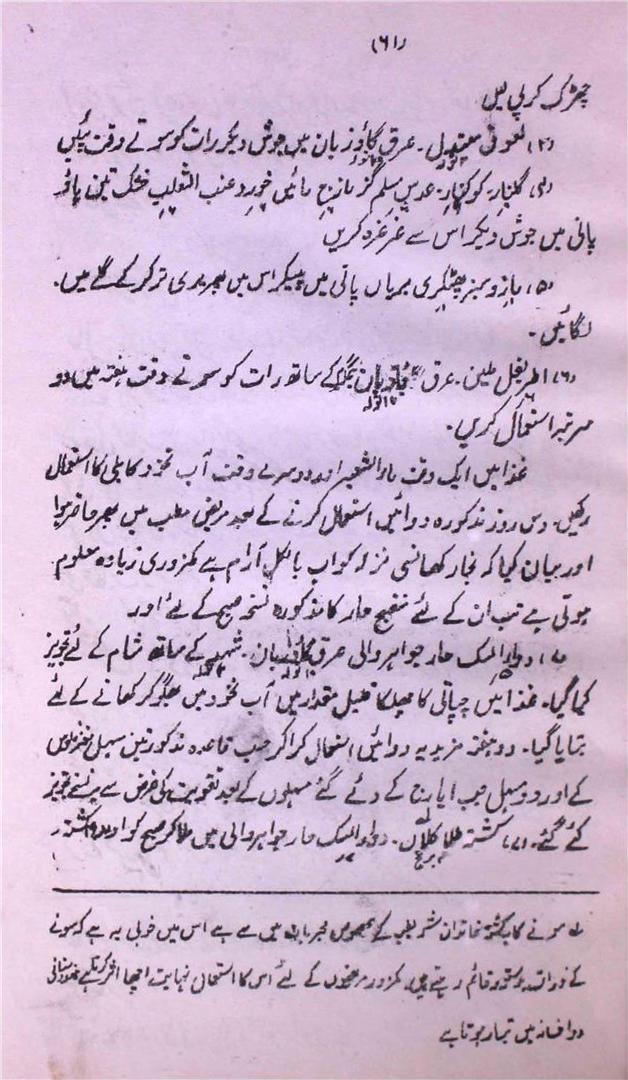 (۶۱)
چھڑک کر پی لیں
(۳) لعوق معتدل۔ عرق گاؤزبان میں جوش دیکر رات کو سوتے وقت پئیں
(۴) گلنار۔ کوکنار۔ عدس مسلم گزمازنج مائیں خورد عنب الثعلب خشک تین پاؤ
پانی میں جوش دیکر اس سے غرغرہ کریں
(۵) مازو سبز پھٹکری بریاں پانی میں پیسکر اس میں پھریدی تر کر کے گلے میں
لگائیں۔
(۶) اطریفل عرق بادیان کے ساتھ رات کو سوتے وقت ہفتہ میں دو
مرتبہ استعمال کریں۔
غذا میں ایک وقت ماء الشعیر اور دوسرے وقت آب نخود کابلی کا استعمال
رکھیں۔ دس روز مذکورہ دوائیں استعمال کرنے کے بعد مریض مطب میں پھر حاضر ہوا
اور بیان کیا کہ بخار کھانسی نزلہ کو اب بالکل آرام ہے کمزوری زیادہ معلوم
ہوتی ہے تب ان کے لئے منضج حار کا مذکورہ نسخہ صبح کے لئے اور
دواء المسک حار جواہر والی عرق گاؤزبان۔ شہد کے ساتھ شام کے لئے تجویز
کیا گیا۔ غذا میں چپاتی کا چھلکا قلیل مقدار میں آب نخود میں بھگو کر کھانے کے لئے
بتایا گیا۔ دو ہفتہ مزید یہ دوائیں استعمال کرا کر حسب قاعدہ مذکور تین مسہل
کے اور دو مسہل حب ایارج کے دئے گئے مسہلوں کے بعد تقویت کی غرض سے یہ نسخے تجویز
کئے گئے۔ (۱) کشتہ طلا کلاں۔ دواء المسک حار جواہر والی میں ملا کر صبح کو اور کشتہ
سونے کا یہ کشتہ خاندان کے مخصوص مجربات میں سے ہے اس میں خوبی یہ ہے کہ سونے
کے ذرات بدستور قائم رہتے ہیں۔ کمزور مریضوں کے لئے اس کا استعمال نہایت اچھا اثر کرتا ہے
دواخانہ میں تیار ہوتا ہے